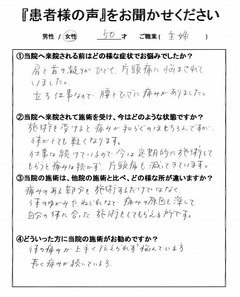 『患者様の声』をお聞かせください
男性 / 女性 50才 ご職業( 主婦 )
①当院へ来院される前はどの様な症状でお悩みでしたか?
肩と首の凝りがひどく、片頭痛に悩まされて
いました。
立ち仕事なので、腰とひざに痛みがありました。
②当院へ来院されて施術を受け、今はどのような状態ですか?
施術を受けると痛みが和らぐのはもちろんですが、
体がとても軽くなります。
仕事は続けているので、今は定期的に施術して
もらうと痛みは殆どなく、片頭痛も減ってきています。
③当院の施術は、他院の施術と比べ、どの様な所が違いますか?
痛みのある部分を施術するだけではなく
体のゆがみやねじれなど、痛みの原因を探して
自分の体に合った施術をしてもらえる所です。
④どういった方に当院の施術がお勧めですか?
体の痛みが上手く伝えられず悩んでいる方
長く痛みが続いている方